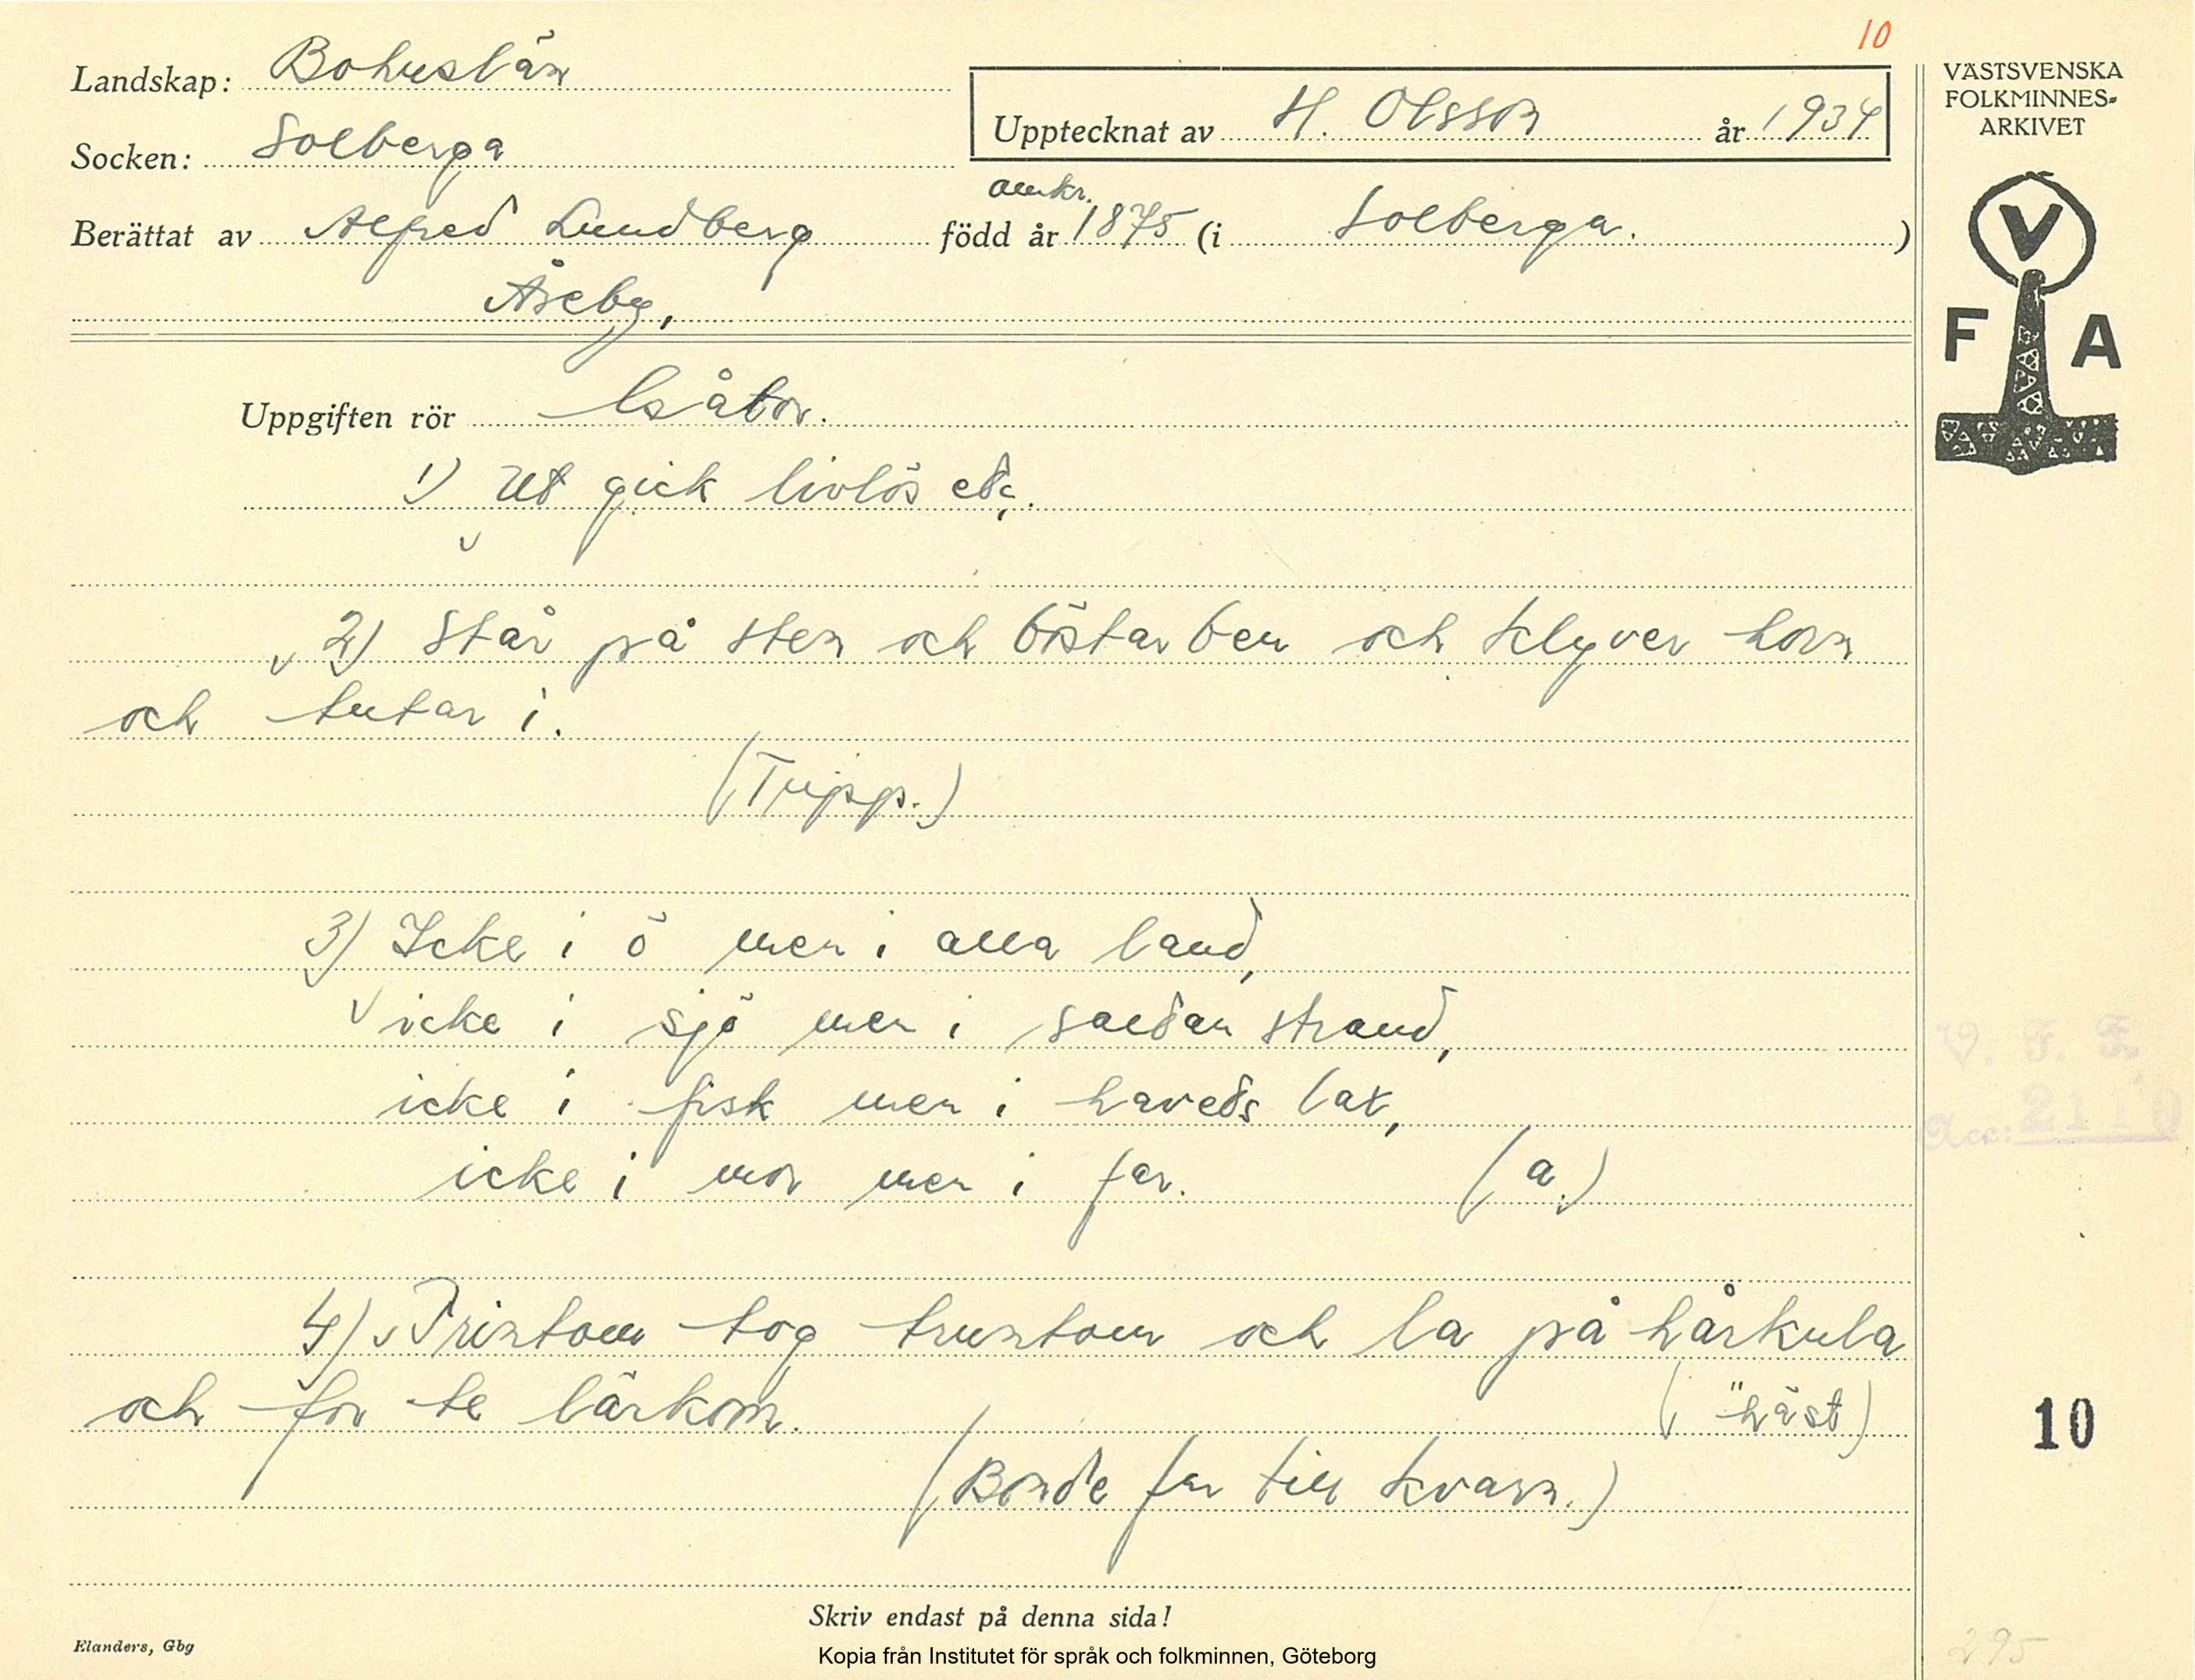 10
Landskap: Bohuslän
Socken: Solberga
Upptecknat av H. Olsson år 1934
Berättat av Alfred Lundberg född år omkr. 1875 (i Solberga.)
Åseby,
VÄSTSVENSKA
FOLKMINNES-
ARKIVET
V
F A
Uppgiften rör Gåtor.
1) Ut gick livlös etc.
2) Står på sten och böstar ben och klyver horn
och tutar i.
(Tupp.)
3) Icke i ö men i alla land,
icke i sjö men i saltan strand,
icke i fisk men i havets lax,
icke i mor men i far. (a.)
4) Trintom tog truntom och la på hårkula
och for te lärkom. (häst)
(Bonde for till kvarn.)
V. F. F.
Acc: 2110
10
Skriv endast på denna sida!
Elanders, Gbg
Kopia från Institutet för språk och folkminnen, Göteborg
295